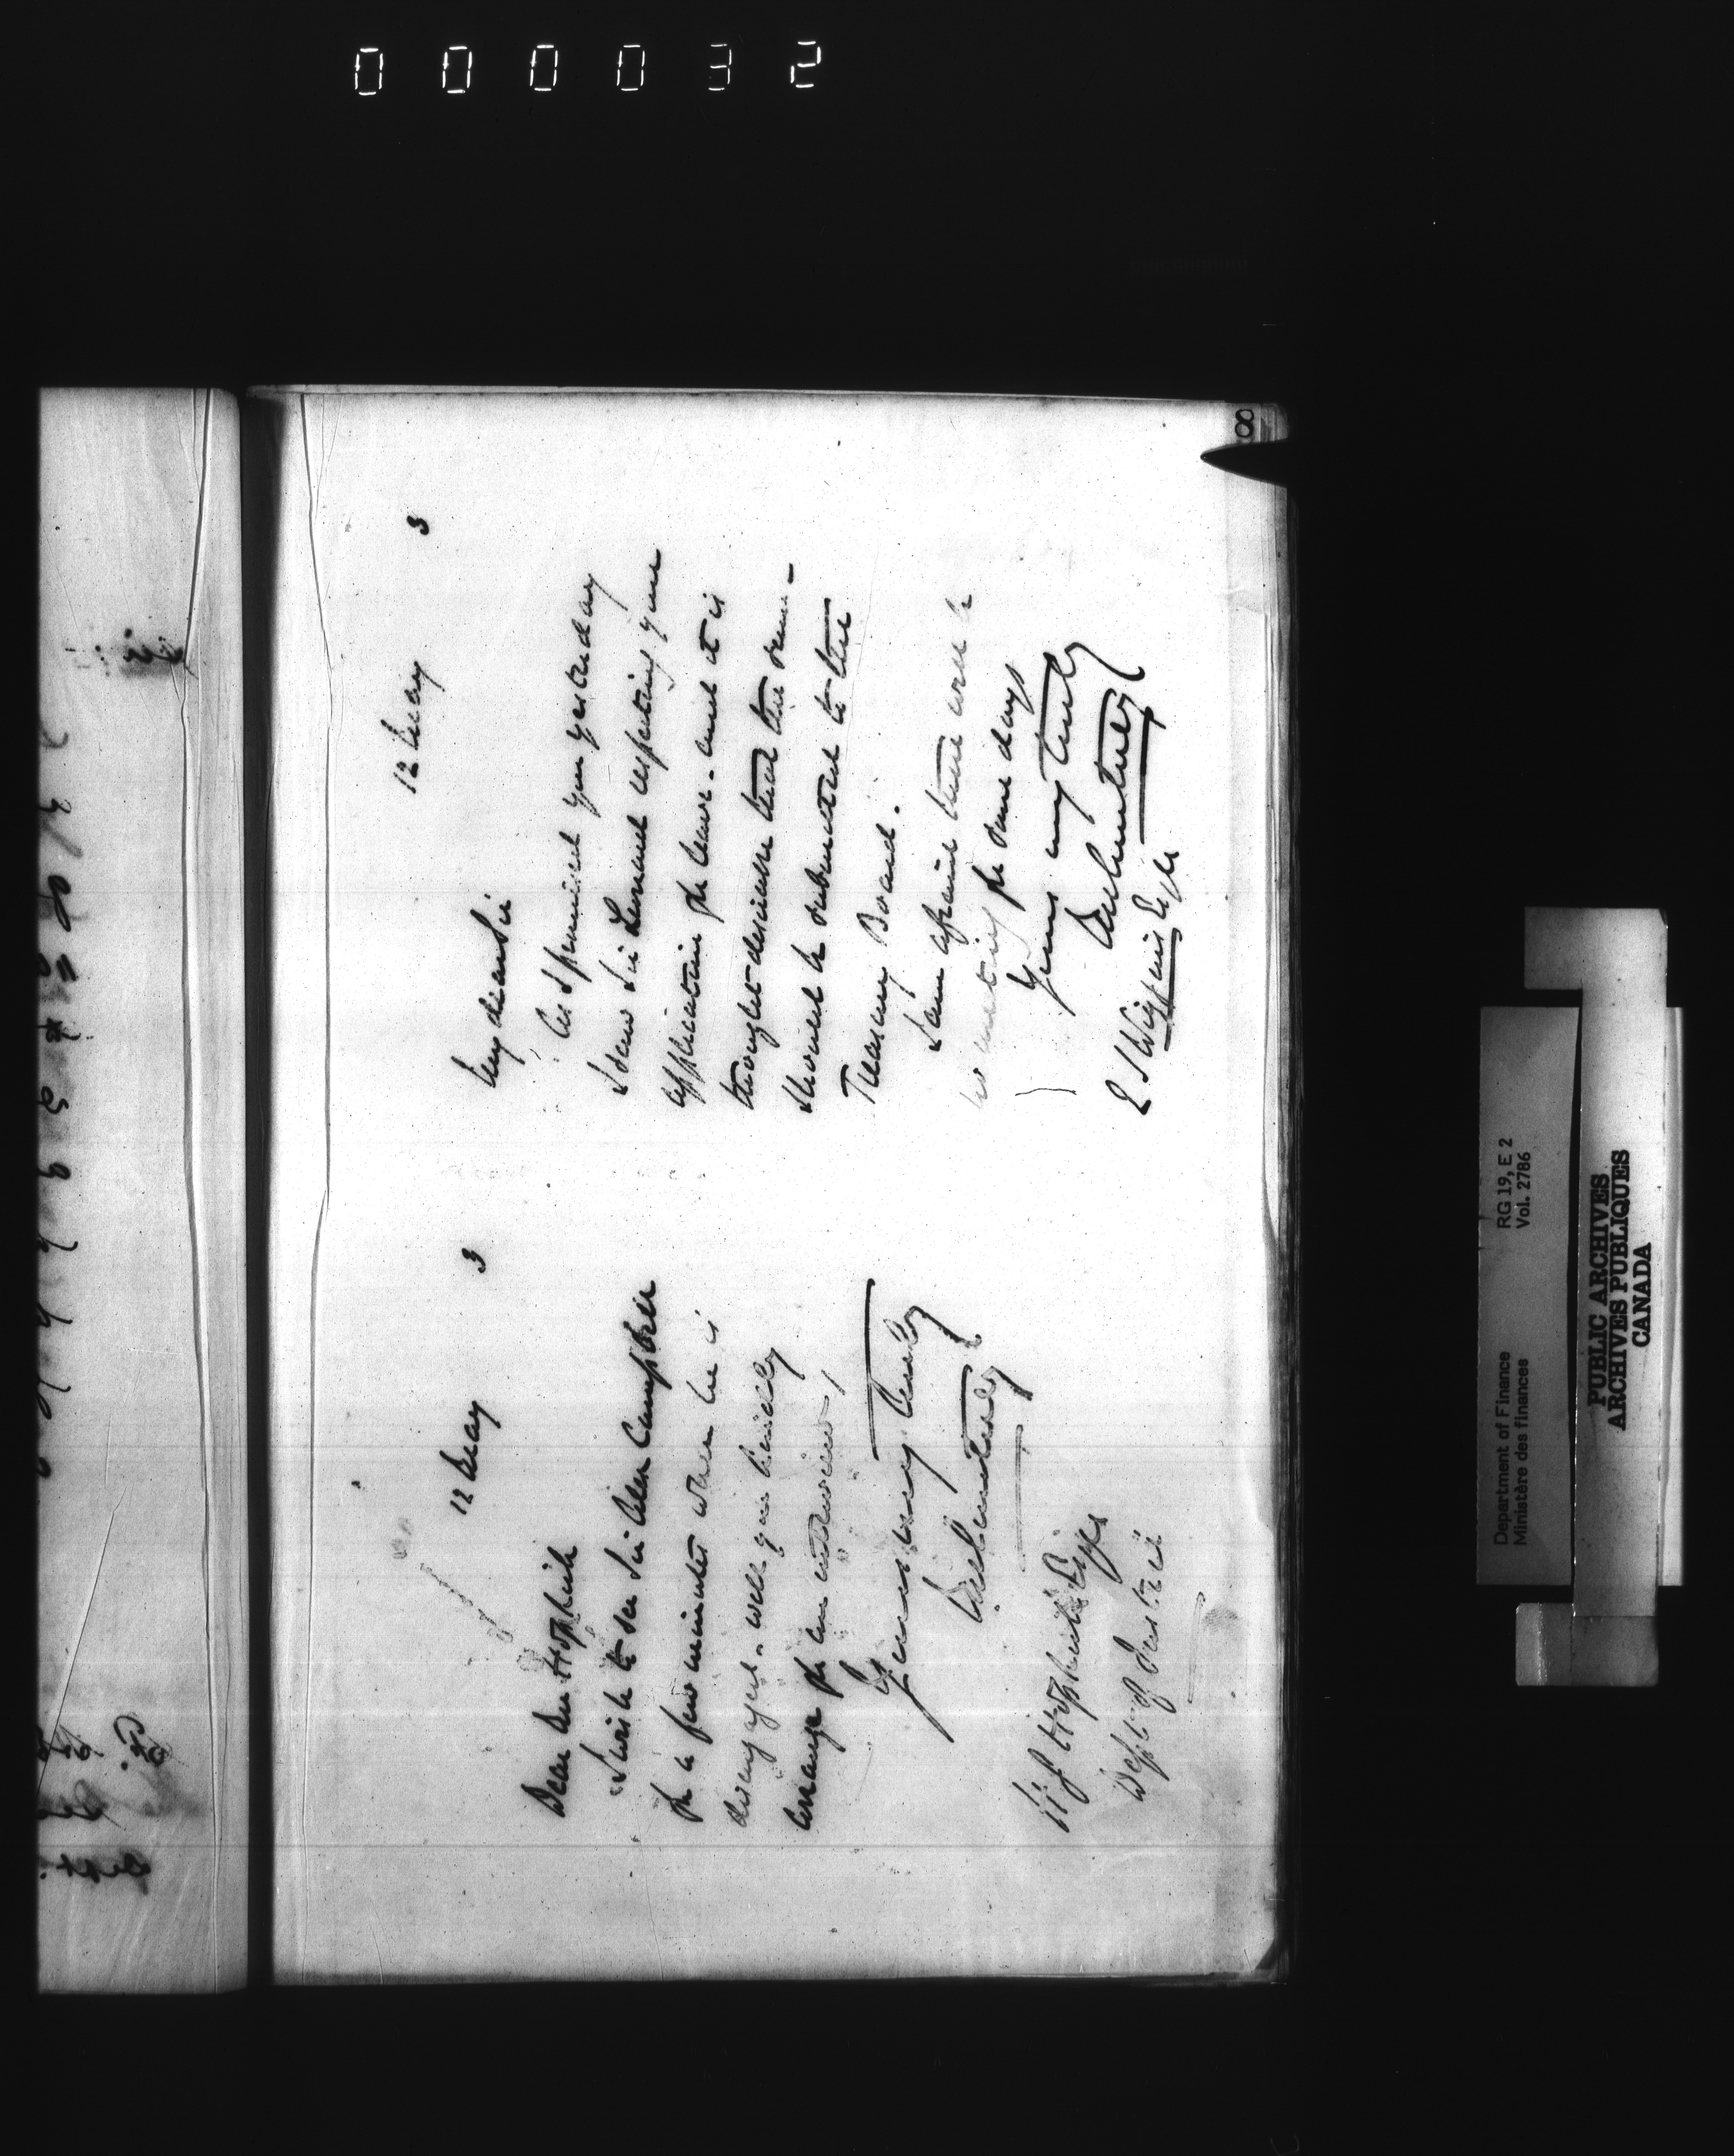 000032
8
12 May 3
Dear Mr Hopkirk
I wish to see Sir Alex Campbell
for a few minutes when he is
disengaged. will you kindly
arrange for an interview,
Yours very truly
JM Courtney
Hopkirk Esqre
Dept of Justice
12 May 3
My dear Sir
As I promised you yesterday
I saw Sir Leonard respecting your
application for leave. and it is
thought desirable that the same
should be submitted to the
Treasury Board.
I am afraid there will be
no meeting for some days
Yours very truly
JM Courtney
E S Wiggins Esqre
Department of Finance
Ministère des finances
RG 19, E 2
Vol. 2786
PUBLIC ARCHIVES
ARCHIVES PUBLIQUES
CANADA